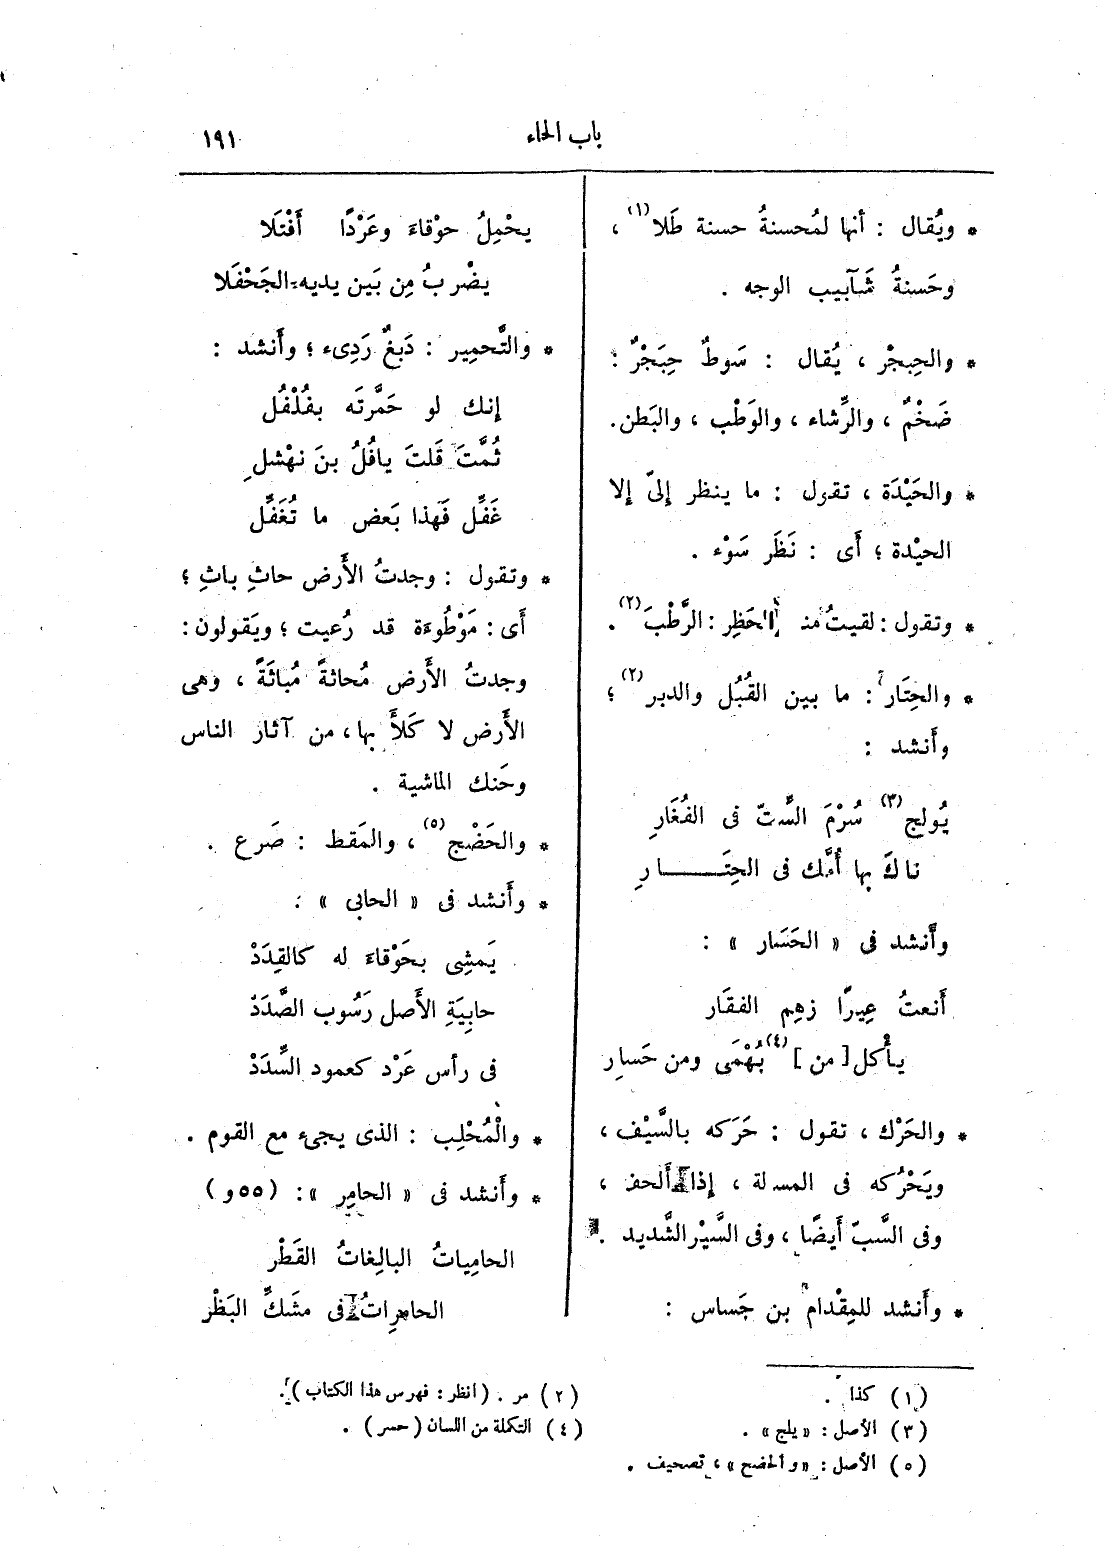 باب الحاء
١٩١
* ويُقال : أنها لمُحسنةُ حسنة طَلا(١) ،
وحَسنةُ شَآبيب الوجه .
* والحِبجْر ، يُقال : سَوطٌ حِبَجْرٌ :
ضَخْمٌ ، والرِّشاء ، والوَطْب ، والبَطن.
* والحَيْدَة ، تقول : ما ينظر إلىّ إلا
الحيْدة ؛ أَى : نَظَر سَوْء .
* وتقول : لقيتُ منه الحَظِر : الرَّطْبَ(٢) .
* والحِتَار : ما بين القُبُل والدبر(٢) ؛
وأَنشد :
يُولج(٣) سُرْمَ السَّتّ فى الفُغَارِ
ناكَ بها أُمَّك فى الحِتَــــــارِ
وأَنشد فى « الحَسَار » :
أَنعتُ عِيرًا زهِم الفقَار
يأْكل [ من ](٤) بُهْمَى ومن حَسارِ
* والحَرْك ، تقول : حَرَكه بالسَّيْف ،
ويَحْرُكه فى المسلة ، إِذا أَلحف ،
وفى السَّبّ أَيضًا ، وفى السَّيْر الشَّديد .
* وأَنشد للمِقْدام بن جَساس :
يحْمِلُ حوْقاءَ وعَرْدًا أَفْتَلَا
يضْربُ مِن بَين يديه الجَحْفَلا
* والتَّحمِير : دَبغٌ رَدِىء ؛ وأَنشد :
إنك لو حَمَّرتَه بفُلْفُل
ثُمَّتَ قَلتَ يافُلُ بنَ نهْشلِ
غَفَّل فَهذا بَعض ما تُغَفَّل
* وتقول : وجدتُ الأَرض حاثِ باثِ ؛
أَى : مَوْطُوءَة قد رُعيت ؛ ويَقولون :
وجدتُ الأَرض مُحاثةً مُباثَةً ، وهى
الأَرض لا كَلأَ بها ، من آثار الناس
وحَنك الماشية .
* والحَضْج(٥) ، والمَقط : صَرع .
* وأَنشد فى « الحابى » :
يَمشِى بحَوْقاءَ له كالقِدَدْ
حابِيَةِ الأَصل رَسُوب الصَّدَدْ
فى رأس عَرْد كعمود السَّدَدْ
* والْمُحْلِب : الذى يجىء مع القوم .
* وأَنشد فى « الحامِر » : (٥٥ و)
الحامِياتُ البالِغاتُ القَطْر
الحامِراتُ فى مشَكِّ البَظْر
(١) كذا .
(٢) مر . (انظر : فهرس هذا الكتاب) .
(٣) الأصل : « يلج » .
(٤) التكملة من اللسان (حسر) .
(٥) الأصل : « والحضح » ، تصحيف .